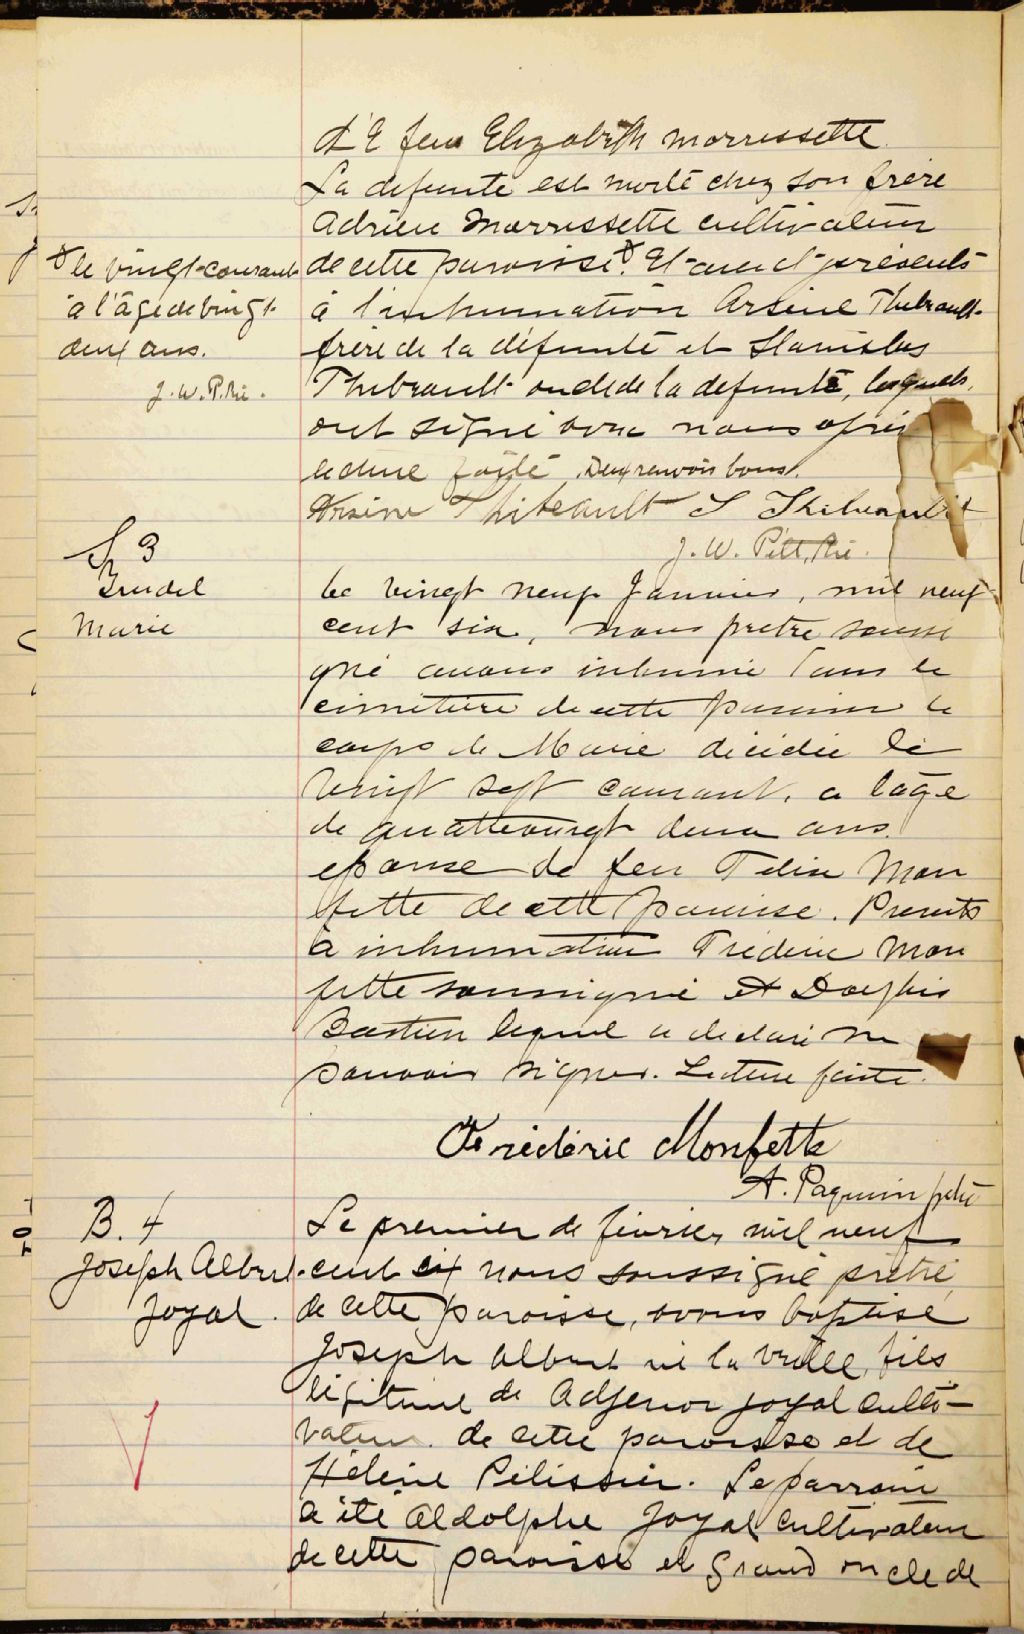 d'E feu Elizabeth Morrissette.
La defunte est morte chez son frère
Adrien Morrissette cultivateur
de cette paroisse. Et avec présents
à l'inhumation Arsène Thibeault
frère de la défunte et Stanislas
Thibeault oncle de la défunte, lesquels
ont signé avec nous après
lecture faite. Deux renvois bons.
Arsène Thibeault S Thibeault
J. W. Pett. Ptre.
x le vingt courant
à l'âge de vingt
deux ans.
J. W. P. Ptre.
S 3
Trudel
Marie
Le vingt neuf Janvier, mil neuf
cent six, nous pretre soussi
gné avons inhumé dans le
cimetière de cette paroisse le
corps de Marie décédée le
vingt sept courant, a l'âge
de quatrevingt deux ans.
epouse de feu Felix Mon
fette de cette paroisse. Presents
à inhumation Frederic Mon
fette soussigné et Dolphis
Bastien lequel a declaré ne
pouvoir signer. Lecture faite.
Frédéric Monfette
A. Paquin ptre
B. 4
Joseph Albert
Joyal.
Le premier de février mil neuf
cent six nous soussigné prêtre
de cette paroisse, avons baptisé
Joseph Albert né la veille, fils
légitime de Adjenor Joyal culti-
vateur de cette paroisse et de
Hélène Pélissier. Le parrain
a été Aldolphe Joyal cultivateur
de cette paroisse et grand oncle de